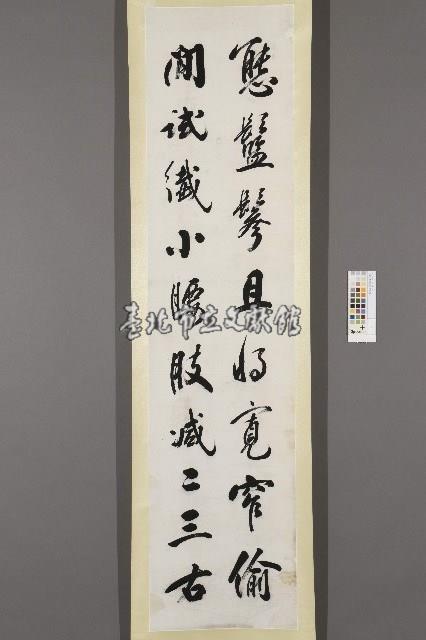 態䰐鬖且將寬窄偷
閒試纖小腰肢減二三古
臺北市立文獻館